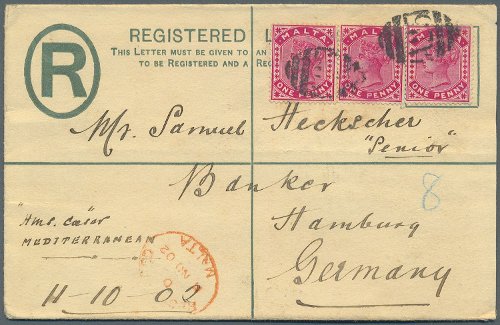 REGISTERED L
THIS LETTER MUST BE GIVEN TO AN
TO BE REGISTERED AND A
R
MALTA
ONE PENNY
MALTA
ONE PENNY
MALTA
ONE PENNY
Mr. Samuel Heckscher
"Senior"
Banker
8
Hamburg
Germany
"HMS. Cæsar
MEDITERRANEAN
11-10-02
MALTA
02